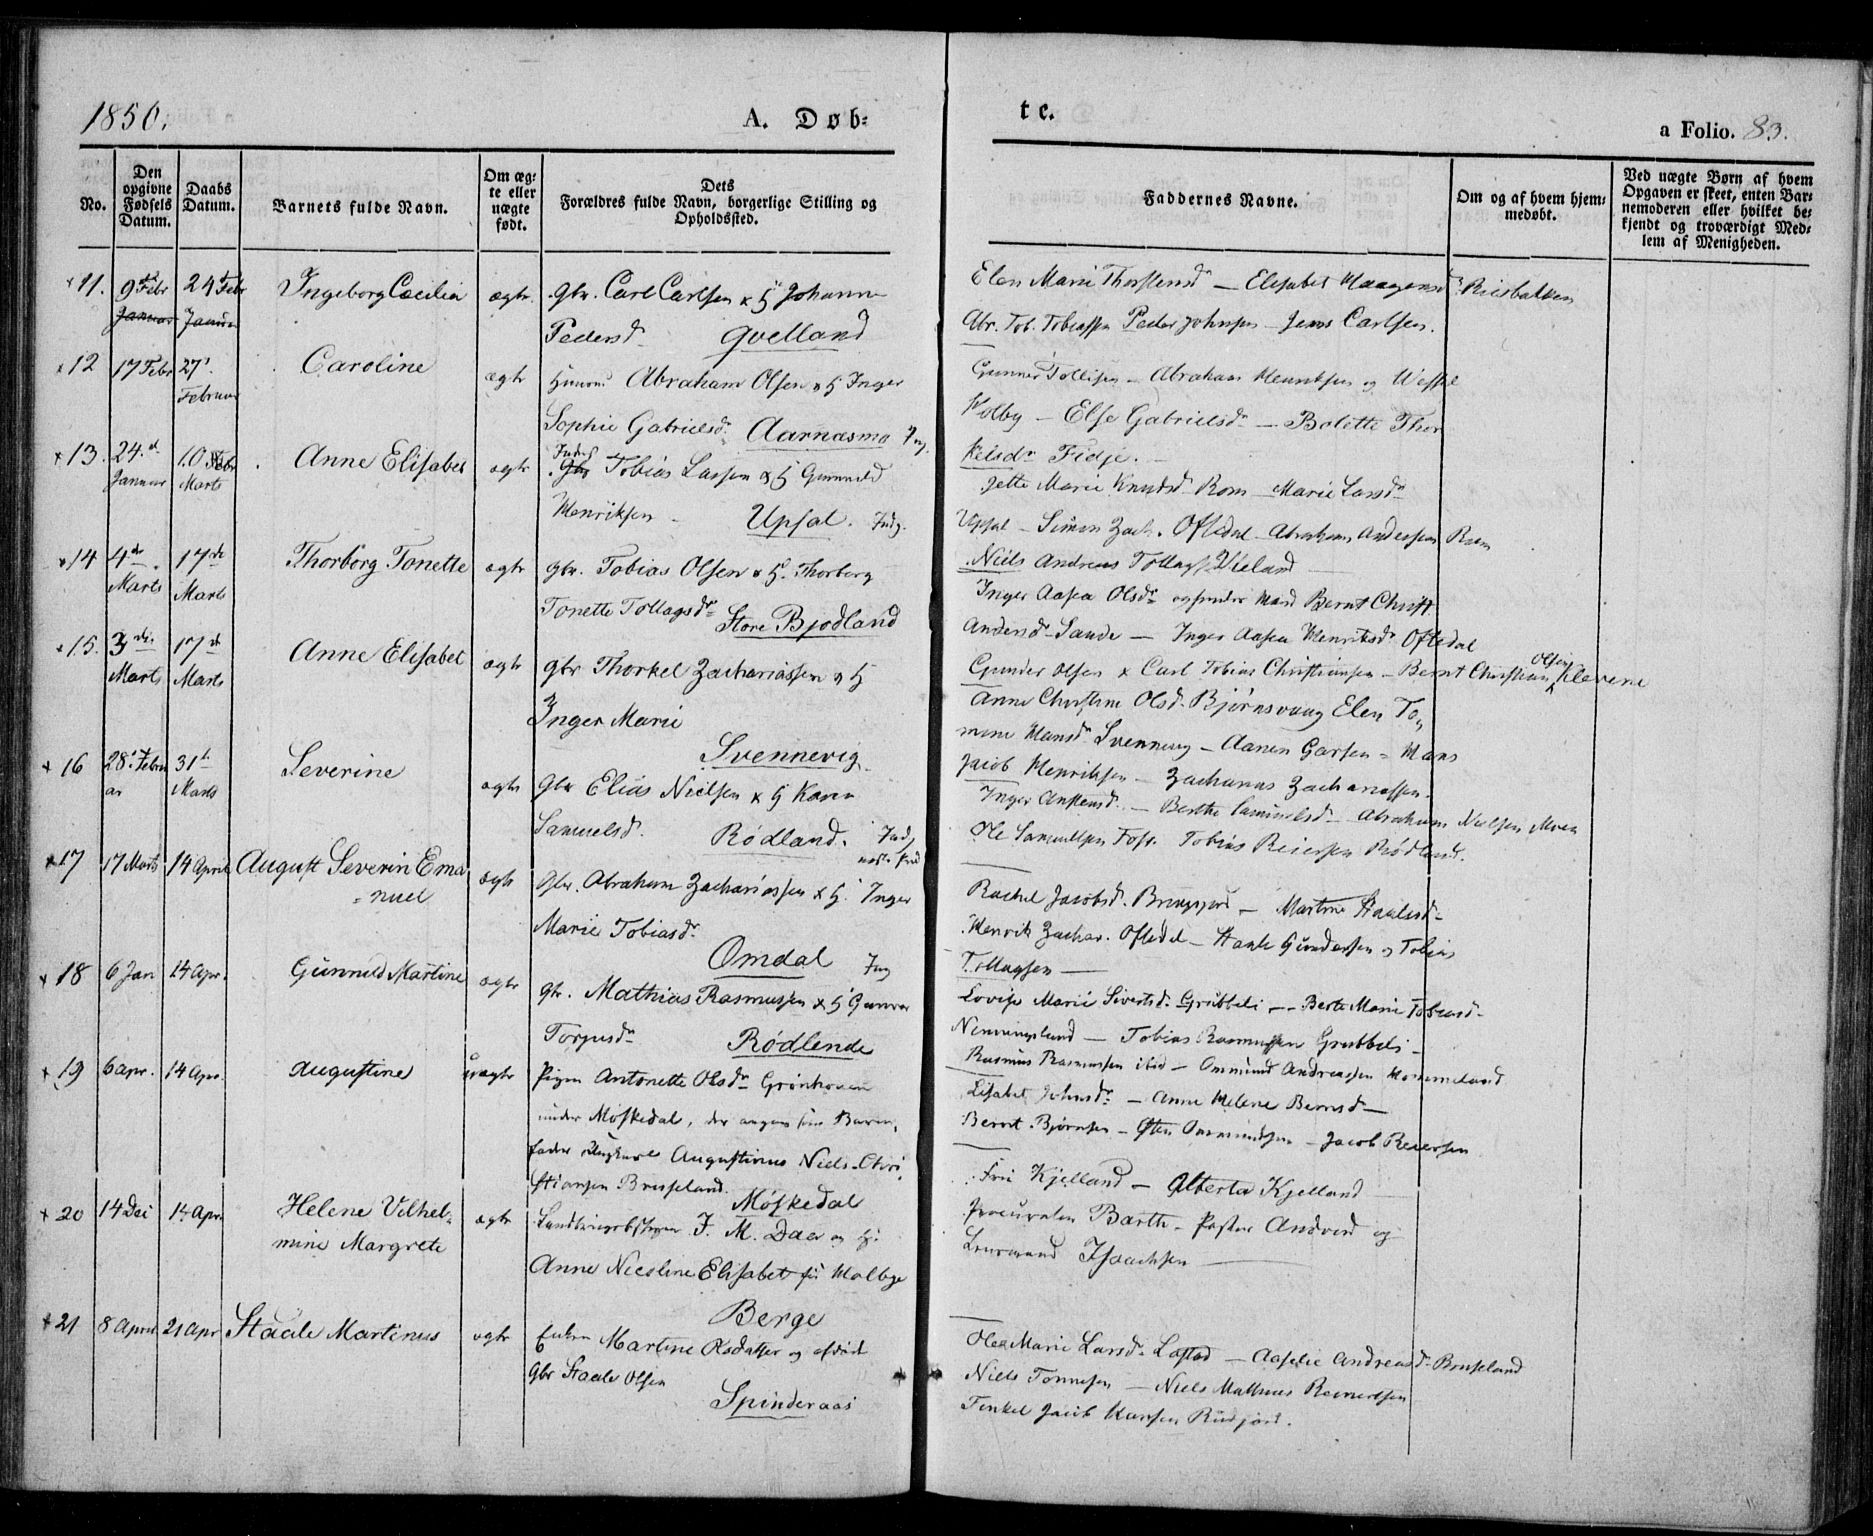 1850.
A. Døb=
te.
a Folio. 83.
No.
Den opgivne Fødsels Datum.
Daabs Datum.
Barnets fulde Navn.
Om ægte eller uægte født.
Dets
Forældres fulde Navn, borgerlige Stilling og
Opholdssted.
Faddernes Navne.
Om og af hvem hjem=
medøbt.
Ved uægte Børn af hvem
Opgaven er skeet, enten Bar=
nemoderen eller hvilket be=
kjendt og troværdigt Med=
lem af Menigheden.
11. 9 Febr 24 Febr Ingeborg Cæcilia ægte Gbr. Carl Carlsen & H Johanne
Januar Januar
Pedersd. Qvelland
Elen Marie Thorstensd — Elisabet Haagensd Riisbakken
Abr. Tob. Tobiassen Peder Johnsen — Jens Carlsen.
12 17 Febr 27 Februar Caroline ægte Abraham Olsen & H Inger
Sophie Gabrielsd. Aarnæsmo
Gunner Tollisen — Abraham Henriksen og
Holby — Else Gabrielsd — Bolette Thor
kelsdr Fidje.
13. 24 Januar 10 Marts Anne Elisabet ægte Tobias Lassen & H Gunnild
Henriksen Upsal. Indg.
Jette Marie Knudsd Rom — Marie Larsd
Upsal — Simon Zach. Oftedal — Abraham Anderssen Rom
Niels Andreas Tollagss Vieland
14 4de Marts 17de Marts Thorborg Tonette ægte Gbr. Tobias Olsen & H. Thorborg
Tonette Tollagsdr Store Bjodland
Inger Aasea Olsdr Bernt Christ.
Andersd Sande — Inger Aasea Henriksd Oftedal
Gunder Olsen & Carl Tobias Christiansen — Bernt Christian Olsen Klevene
15. 3die Marts 17de Marts Anne Elisabet ægte Gbr Thorkel Zachariassen & H
Inger Marie
Svennevig
Anne Christine Olsd. Bjørnsvaag Elen To„
mine Hansd Svennevig — Aanen Garsen = Hans
Jacob Henriksen — Zacharias Zachariassen.
16 28 Febru 31 Marts Severine ægte Gbr Elias Nielsen & H Karen
ar
Samuelsd. Rødland.
Inger — Berthe Samuelsd — Abraham Nielsen Moen
Ole Samuelsen Foss. Tobias Reiersen Rødland.
17 17 Marts 14 April August Severin Ema
=nuel
ægte Gbr. Abraham Zachariassen & H. Inger
Marie Tobiasd.
Omdal
Rachel Jacobsd. — Martine Staalesd=
Henrik Zachar. Oftedal — Staale Gundersen og Tobias
Tollagsen —
18 6 Jan 14 Apr. Gunnild Martine ægte Gbr. Mathias Rasmussen & H Gunvor
Torjusdr Rødlende
Lovise Marie Sivertsd. Grubbeli — Berte Marie Tobiasd—
Nenningsland — Tobias Rasmussen Grubbeli —
Rasmus Rasmussen ibid — Ommund Andreassen Hommeland
19 6 apr. 14 Apr. Augustine uægte Pigen Antonette Olsdr Grønhoven
under Møskedal, der angav som Barne„
fader Ungkarl Augustinus Niels Chri
stiansen Briseland. Møskedal
Lisabet Johnsdr — Anne Helene Berntsd —
Bernt Bjørnsen — Østen Ommundsen — Jacob Reiersen
20 14 Dec 14 Apr. Helene Vilhel=
mine Margrete
ægte J. M. Daae og H.
Anne Nicoline Elisabet fø Malbye
Berge
Kjelland — Alberta Kjelland
Procurator Barth — Pastor og
Lensmand Isaachsen
21 8 April 21 Apr Staale Martinus ægte Enken Martine Olsdatter og afdøde
Gbr Staale Olsen
Spinderaas
Olea Marie Larsd. Løstad — Aaselie Andreasd Briseland
Niels Tønnesen — Niels Mathias Reinertsen
Tenkel Jacob Hansen